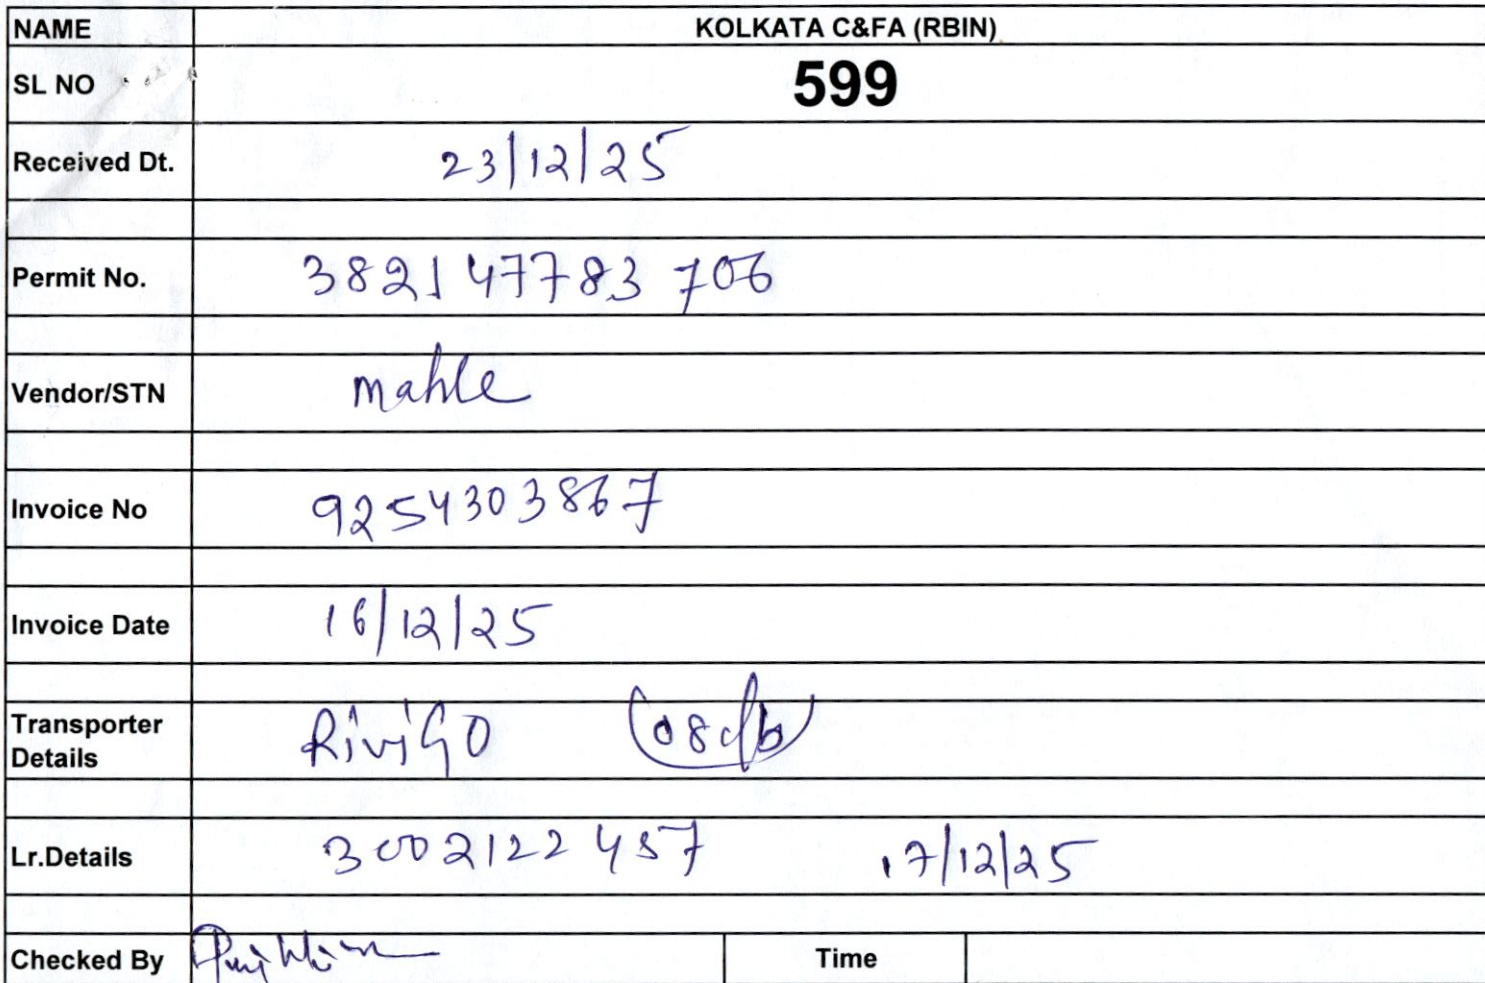 NAME KOLKATA C&FA (RBIN)
SL NO 599
Received Dt. 23/12/25
Permit No. 382147783706
Vendor/STN mahle
Invoice No 9254303867
Invoice Date 16/12/25
Transporter Details RiviGO
Lr.Details 3002122457 17/12/25
Checked By Time